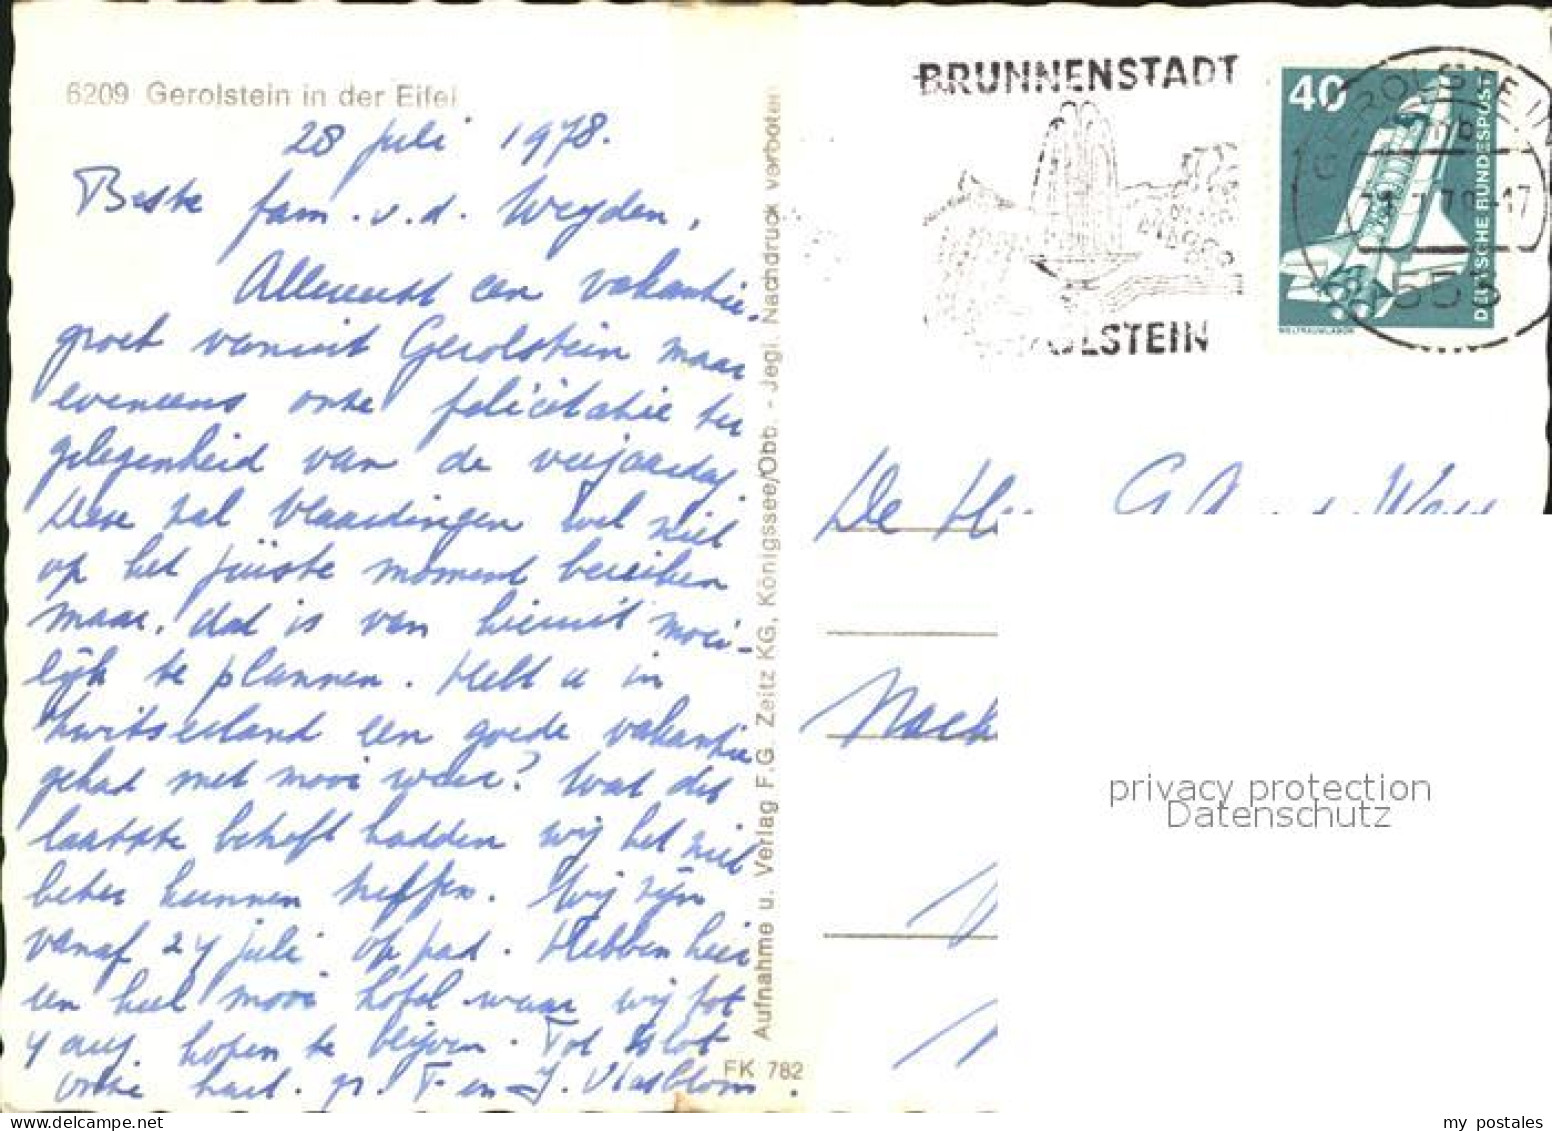 6209 Gerolstein in der Eifel
28 juli 1978.
Beste fam. v.d. Weyden,
Allereerst een vakantie-
groet vanuit Gerolstein maar
eveneens onze felicitatie ter
gelegenheid van de verjaardag.
Deze zal Vlaardingen wel niet
op het juiste moment bereiken
maar, dat is van hieruit moei-
lijk te plannen. Hebt u in
Zwitserland een goede vakantie
gehad met mooi weer? Wat dit
laatste betreft hadden wij het niet
beter kunnen treffen. Wij zijn
vanaf 24 juli op pad. Hebben hier
een heel mooi hotel waar wij tot
4 aug hopen te blijven. Tot slot
onze hart. gr. F en J. Vlasblom.
Aufnahme u. Verlag F.G. Zeitz KG, Königssee/Obb. - Jegl. Nachdruck verboten
FK 782
BRUNNENSTADT
OLSTEIN
40
DEUTSCHE BUNDESPOST
WELTRAUMLABOR
GEROLSTEIN
-17
De
privacy protection
Datenschutz
my postales